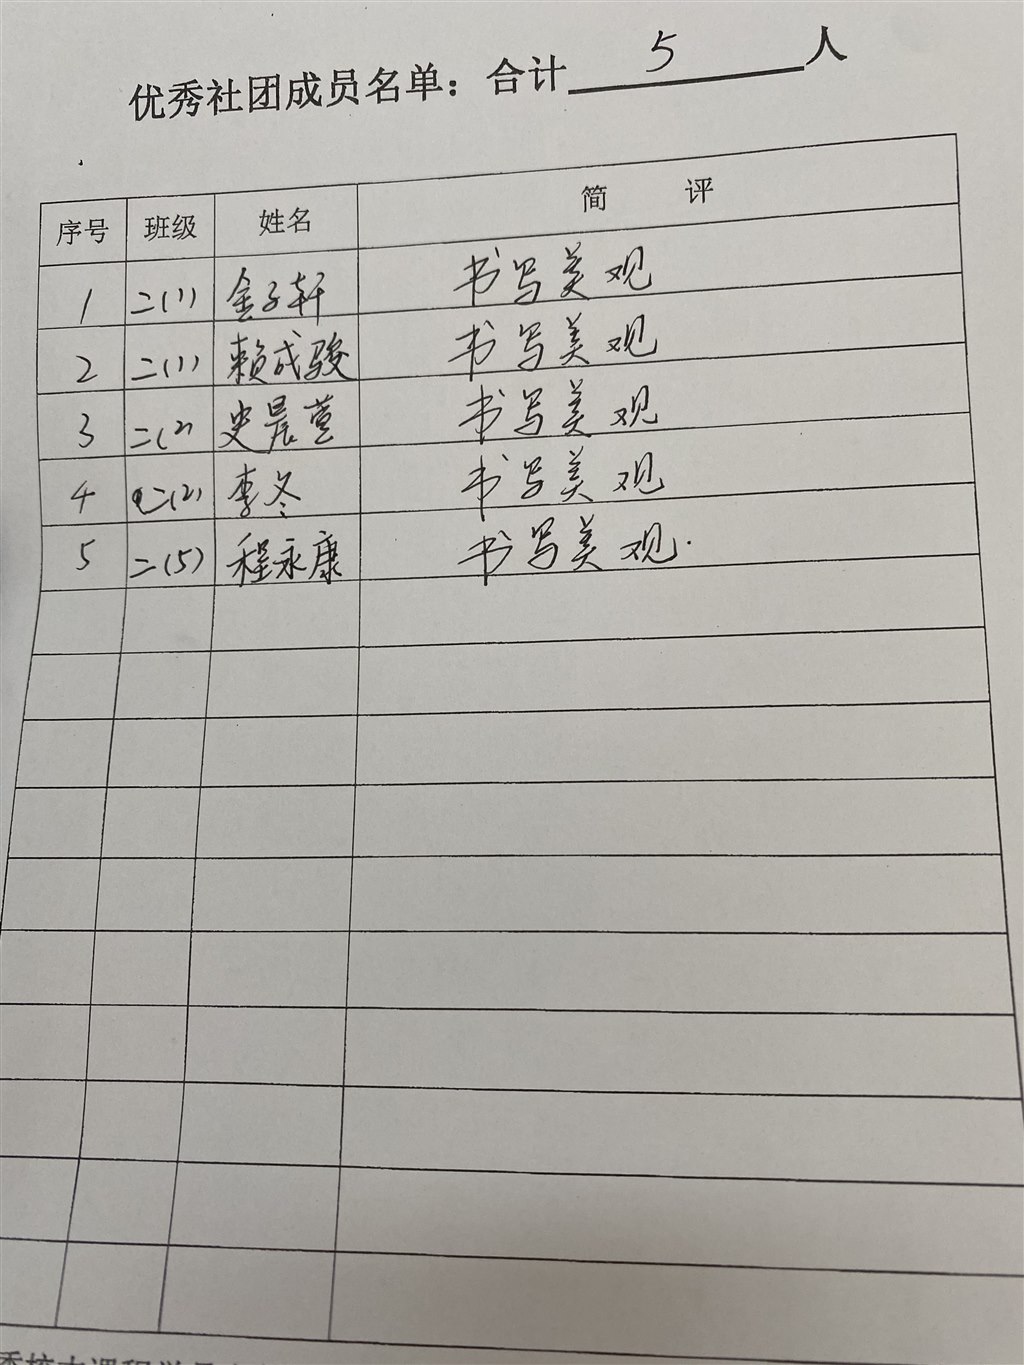 优秀社团成员名单：合计 5 人
序号 班级 姓名 简 评
1 二(1) 金子轩 书写美观
2 二(1) 赖成骏 书写美观
3 二(2) 史晨萱 书写美观
4 二(2) 李冬 书写美观
5 二(5) 程永康 书写美观.